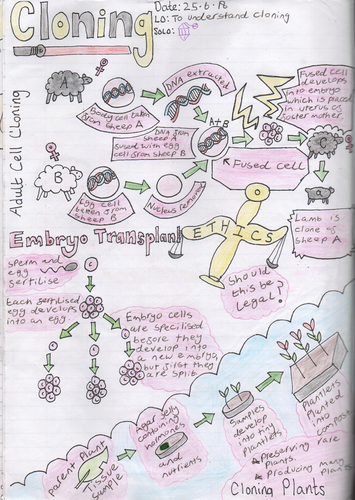 Cloning
Date: 25.6.
LO: To understand cloning
SOLO:
Adult Cell Cloning
A
Body cell taken
from sheep A
DNA extracted
DNA from
sheep A
fused with egg
cell from sheep B
A+B
Fused cell
develops
into embryo
which is placed
in uterus of
foster mother.
B
Egg cell
taken from
sheep B
Nucleus removed
Fused cell
Lamb is
clone of
sheep A
ETHICS
Should
this be
legal?
Embryo Transplant
sperm and
egg
fertilise
Each fertilised
egg develops
into an egg.
Embryo cells
are specilised
before they
develop into
a new embryo,
but first they
are split.
Parent Plant
Tissue
Sample
Agar jelly
containing
hormones
and nutrients
Samples
develop
into tiny
plantlets
Plantlets
planted
into compost
Preserving rare
Producing many
Cloning Plants